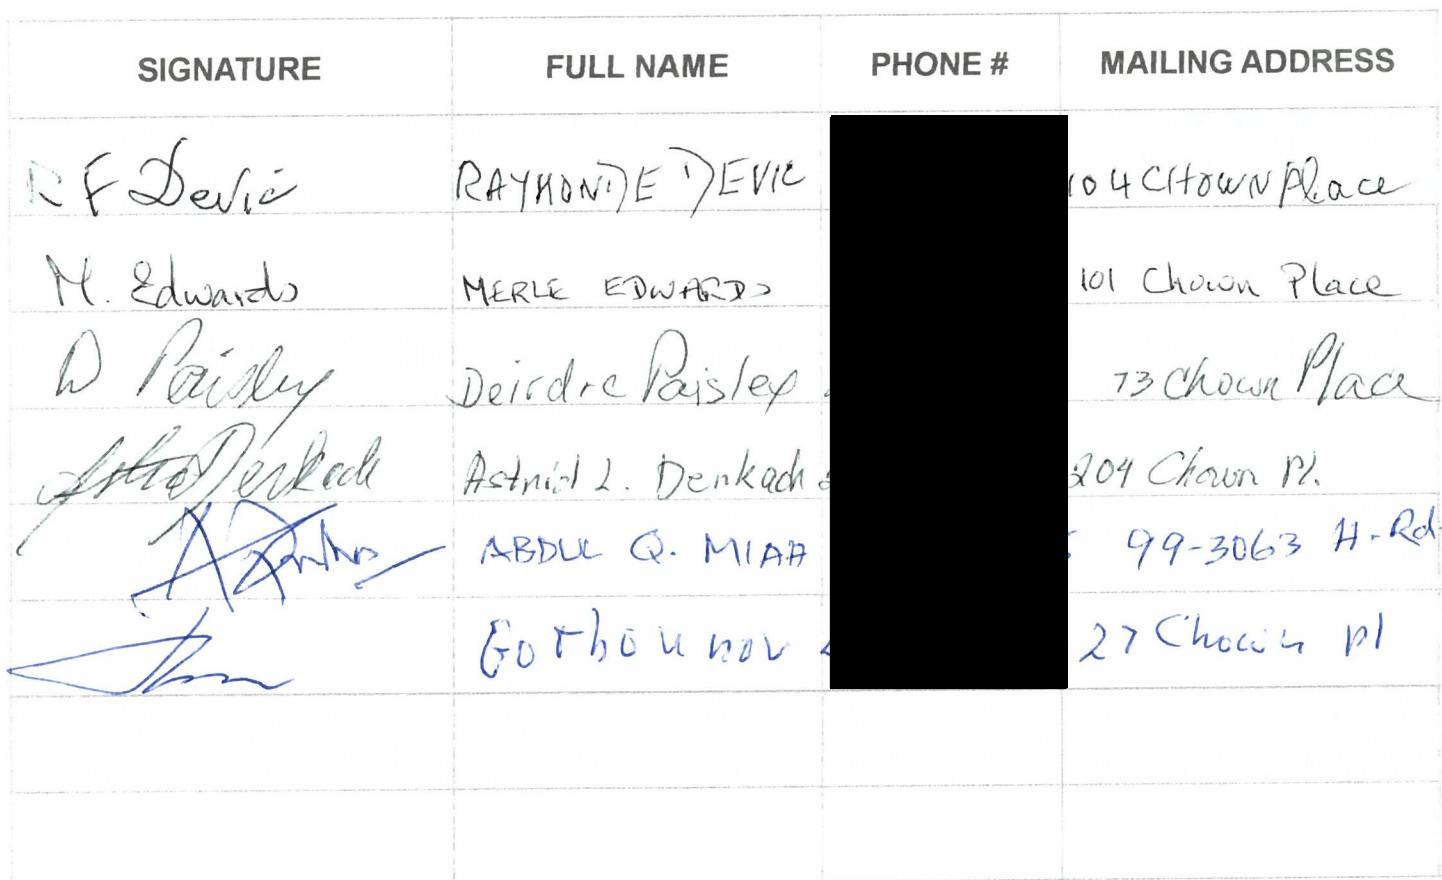 SIGNATURE FULL NAME PHONE # MAILING ADDRESS
R F Devic RAYMONDE DEVIC 104 CHOWN Place
M. Edwards MERLE EDWARDS 101 Chown Place
D Paisley Deirdre Paisley 73 Chown Place
Astrid Denkach Astrid L. Denkach 204 Chown Pl.
ABDUL Q. MIAH 99-3063 H-Rd
27 Chown pl